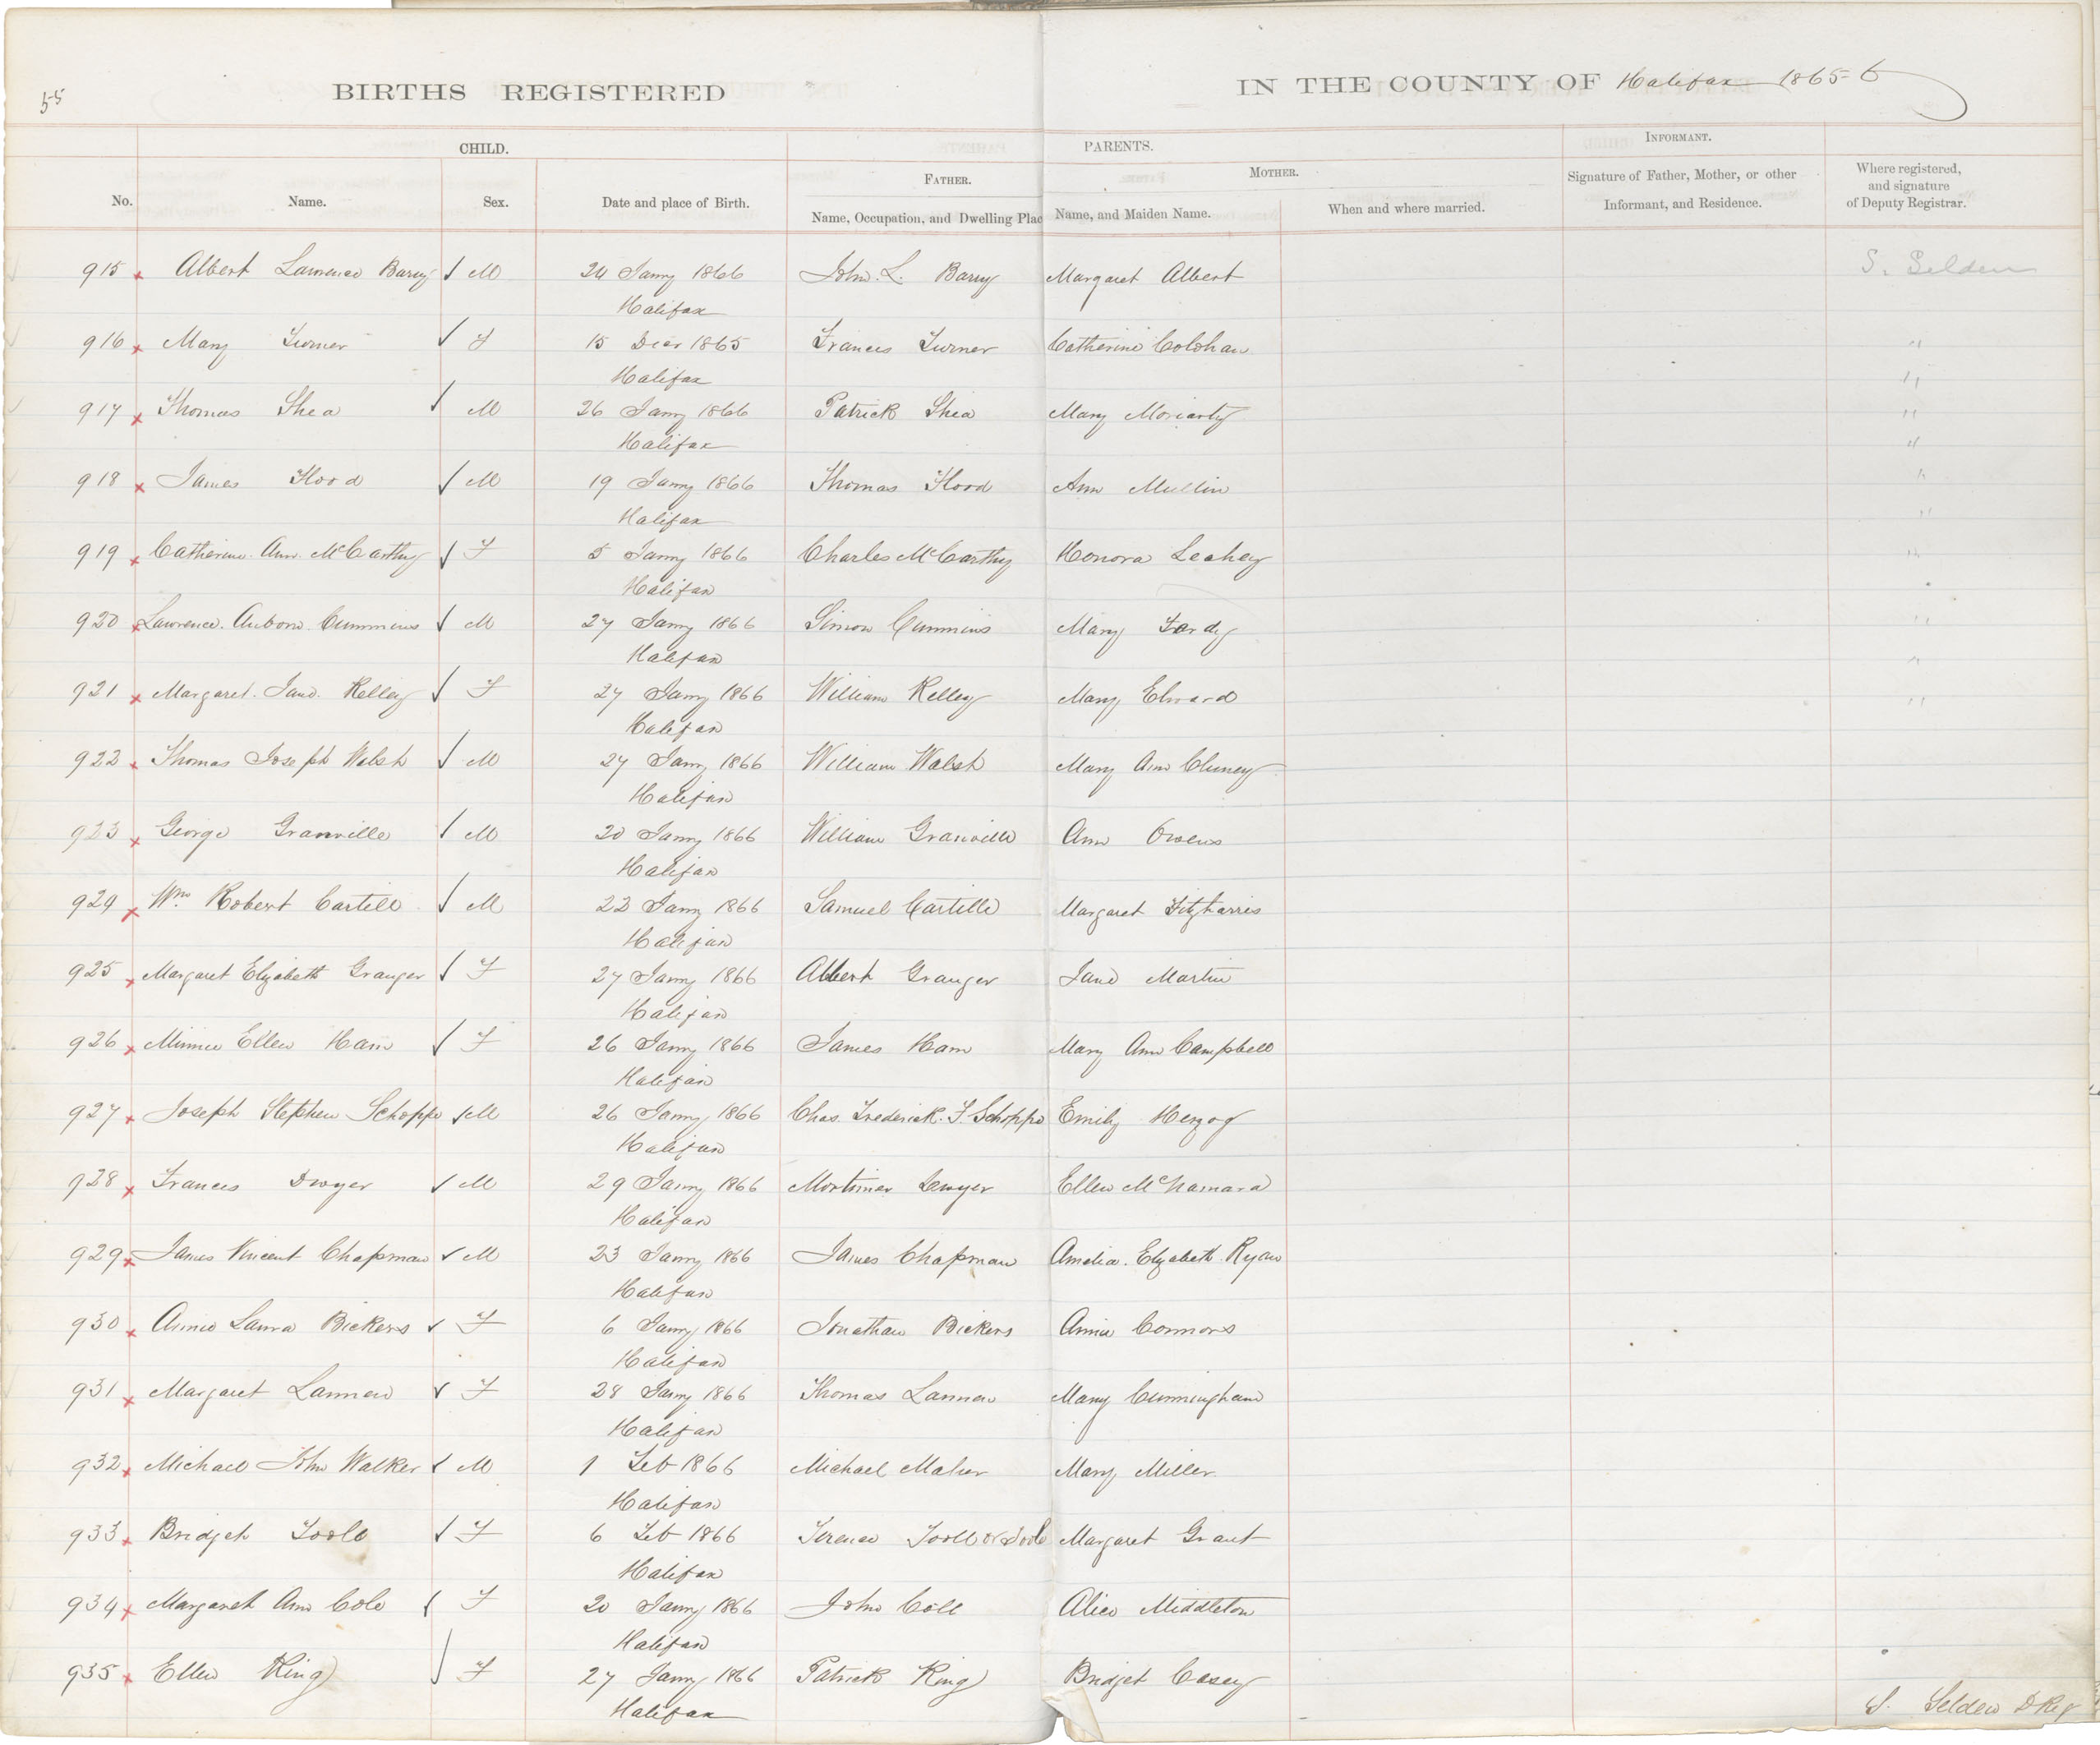 55
BIRTHS REGISTERED IN THE COUNTY OF Halifax 1865-6
CHILD. PARENTS. INFORMANT.
FATHER. MOTHER.
No. Name. Sex. Date and place of Birth. Name, Occupation, and Dwelling Plac Name, and Maiden Name. When and where married. Signature of Father, Mother, or other Informant, and Residence. Where registered, and signature of Deputy Registrar.
915 Albert Lawrence Barry M 24 Jany 1866 John L. Barry Margaret Albert S. Selden
Halifax
916 Mary Turner F 15 Decr 1865 Frances Turner Catherine Colohan "
Halifax "
917 Thomas Shea M 26 Jany 1866 Patrick Shea Mary Moriarty "
Halifax "
918 James Flood M 19 Jany 1866 Thomas Flood Ann Mullin "
Halifax "
919 Catherine Ann McCarthy F 5 Jany 1866 Charles McCarthy Honora Leahey "
Halifax
920 Lawrence Cummins M 27 Jany 1866 Simon Cummins Mary "
Halifax "
921 Margaret Jane Kelley F 27 Jany 1866 William Kelley Mary Elward "
Halifax
922 Thomas Joseph Walsh M 27 Jany 1866 William Walsh Mary Ann Cluney
Halifax
923 George Granville M 20 Jany 1866 William Granville Ann Owens
Halifax
924 Wm Robert Cartill M 22 Jany 1866 Samuel Cartille Margaret Fitzharris
Halifax
925 Margaret Elizabeth Granger F 27 Jany 1866 Albert Granger Jane Martin
Halifax
926 Minnie Ellen Ham F 26 Jany 1866 James Ham Mary Ann Campbell
Halifax
927 Joseph Stephen Schoppe M 26 Jany 1866 Chas. Frederick F. Schoppe Emily Herzog
Halifax
928 Frances Dwyer M 29 Jany 1866 Mortimer Dwyer Ellen McNamara
Halifax
929 James Vincent Chapman M 23 Jany 1866 James Chapman Amelia Elizabeth Ryan
Halifax
930 Annie Laura Bickers F 6 Jany 1866 Jonathan Bickers Annie Connors
Halifax
931 Margaret Lannen F 28 Jany 1866 Thomas Lannen Mary Cunningham
Halifax
932 Michael John Walker M 1 Feb 1866 Michael Maher Mary Miller
Halifax
933 Bridget Toole F 6 Feb 1866 Terence Toole or Margaret Grant
Halifax
934 Margaret Ann Cole F 20 Jany 1866 John Cole Alice Middleton
Halifax
935 Ellen King F 27 Jany 1866 Patrick King Bridget Casey
Halifax S. Selden D Reg